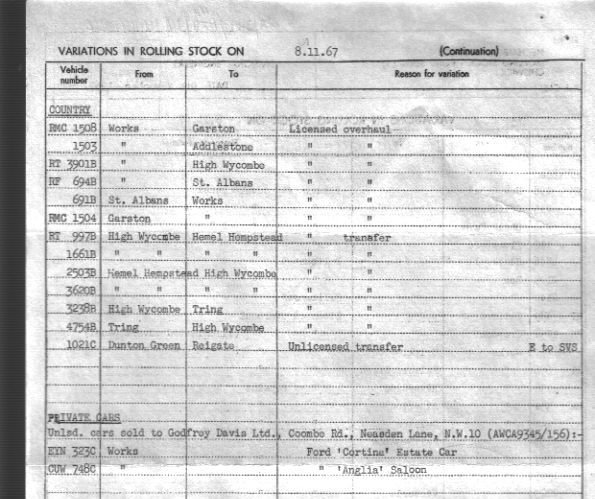 VARIATIONS IN ROLLING STOCK ON 8.11.67 (Continuation)
Vehicle number From To Reason for variation
COUNTRY
RMC 1508 Works Garston Licensed overhaul
1503 " Addlestone " "
RT 3901B " High Wycombe " "
RF 694B " St. Albans " "
691B St. Albans Works " "
RMC 1504 Garston " " "
RT 997B High Wycombe Hemel Hempstead " transfer
1661B " " " " " "
2503B Hemel Hempstead High Wycombe " "
3620B " " " " " "
3238B High Wycombe Tring " "
4754B Tring High Wycombe " "
1021C Dunton Green Reigate Unlicensed transfer E to SVS
PRIVATE CARS
Unlsd. cars sold to Godfrey Davis Ltd., Coombe Rd., Neasden Lane, N.W.10 (AWCA9345/156):-
EYN 323C Works Ford 'Cortina' Estate Car
CUW 748C " " 'Anglia' Saloon